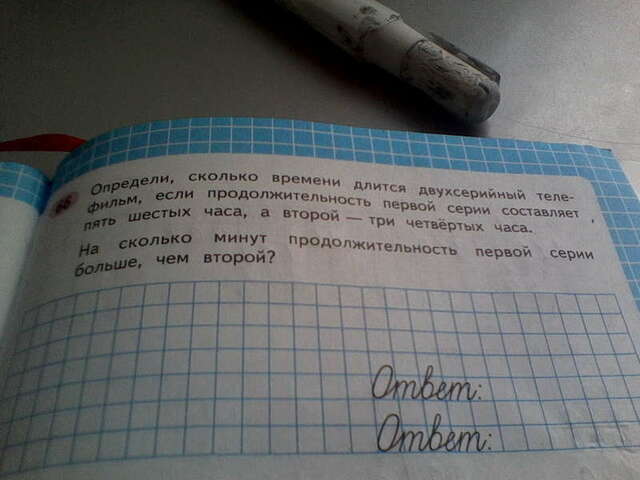 66 Определи, сколько времени длится двухсерийный теле-
фильм, если продолжительность первой серии составляет
пять шестых часа, а второй — три четвёртых часа.
На сколько минут продолжительность первой серии
больше, чем второй?
Ответ:
Ответ: